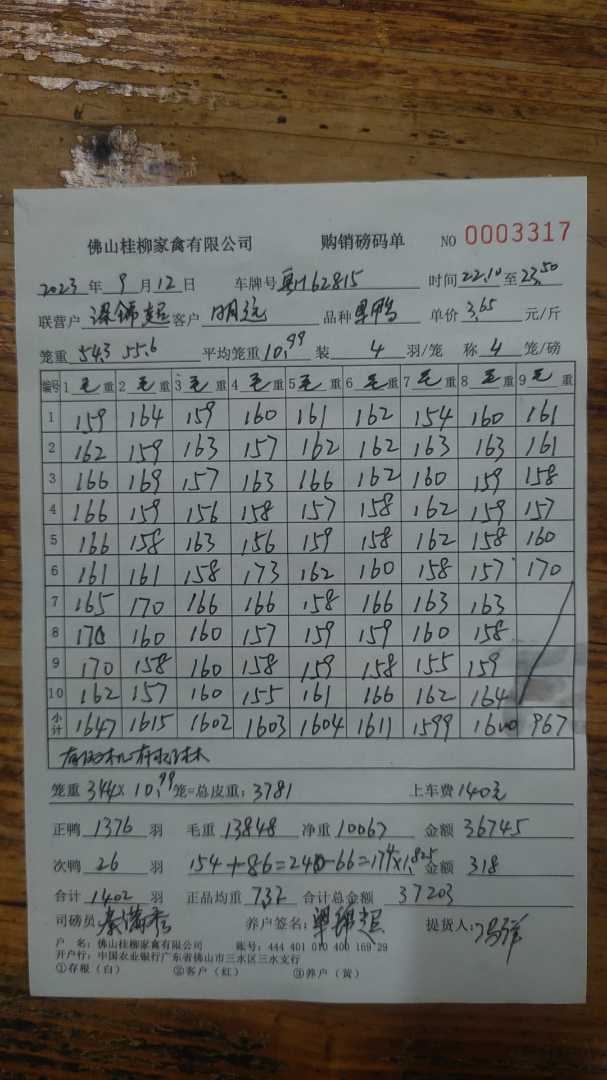 佛山桂柳家禽有限公司 购销磅码单 NO 0003317
2023 年 9 月 12 日 车牌号 粤H62815 时间 22.10 至 23.50
联营户 客户 明记 品种 单价 3.65 元/斤
笼重 543 55.6 平均笼重 10.99 装 4 羽/笼 称 4 笼/磅
编号 1 毛 重 2 毛 重 3 毛 重 4 毛 重 5 毛 重 6 毛 重 7 毛 重 8 毛 重 9 毛 重
1 159 164 159 160 161 162 154 160 161
2 162 159 163 157 162 162 163 163 161
3 166 169 157 163 166 162 160 159 158
4 166 159 156 158 157 158 162 159 157
5 166 158 163 156 159 158 162 158 160
6 161 161 158 173 162 160 158 157 170
7 165 170 166 166 158 166 163 163
8 170 160 160 157 159 159 160 158
9 170 158 160 158 159 158 155 159
10 162 157 160 155 161 166 162 164
小计 1647 1615 1602 1603 1604 1611 1599 1600 967
笼重 344 × 10.99 笼=总皮重: 3781 上车费 140元
正鸭 1376 羽 毛重 13848 净重 10067 金额 36745
次鸭 26 羽 154+86=240-66=174×1.825 金额 318
合计 1402 羽 正品均重 7.32 合计总金额 37203
司磅员: 养户签名: 提货人:
户 名: 佛山桂柳家禽有限公司 账号: 444 401 010 400 169 29
开户行: 中国农业银行广东省佛山市三水区三水支行
①存根(白) ②客户(红) ③养户(黄)